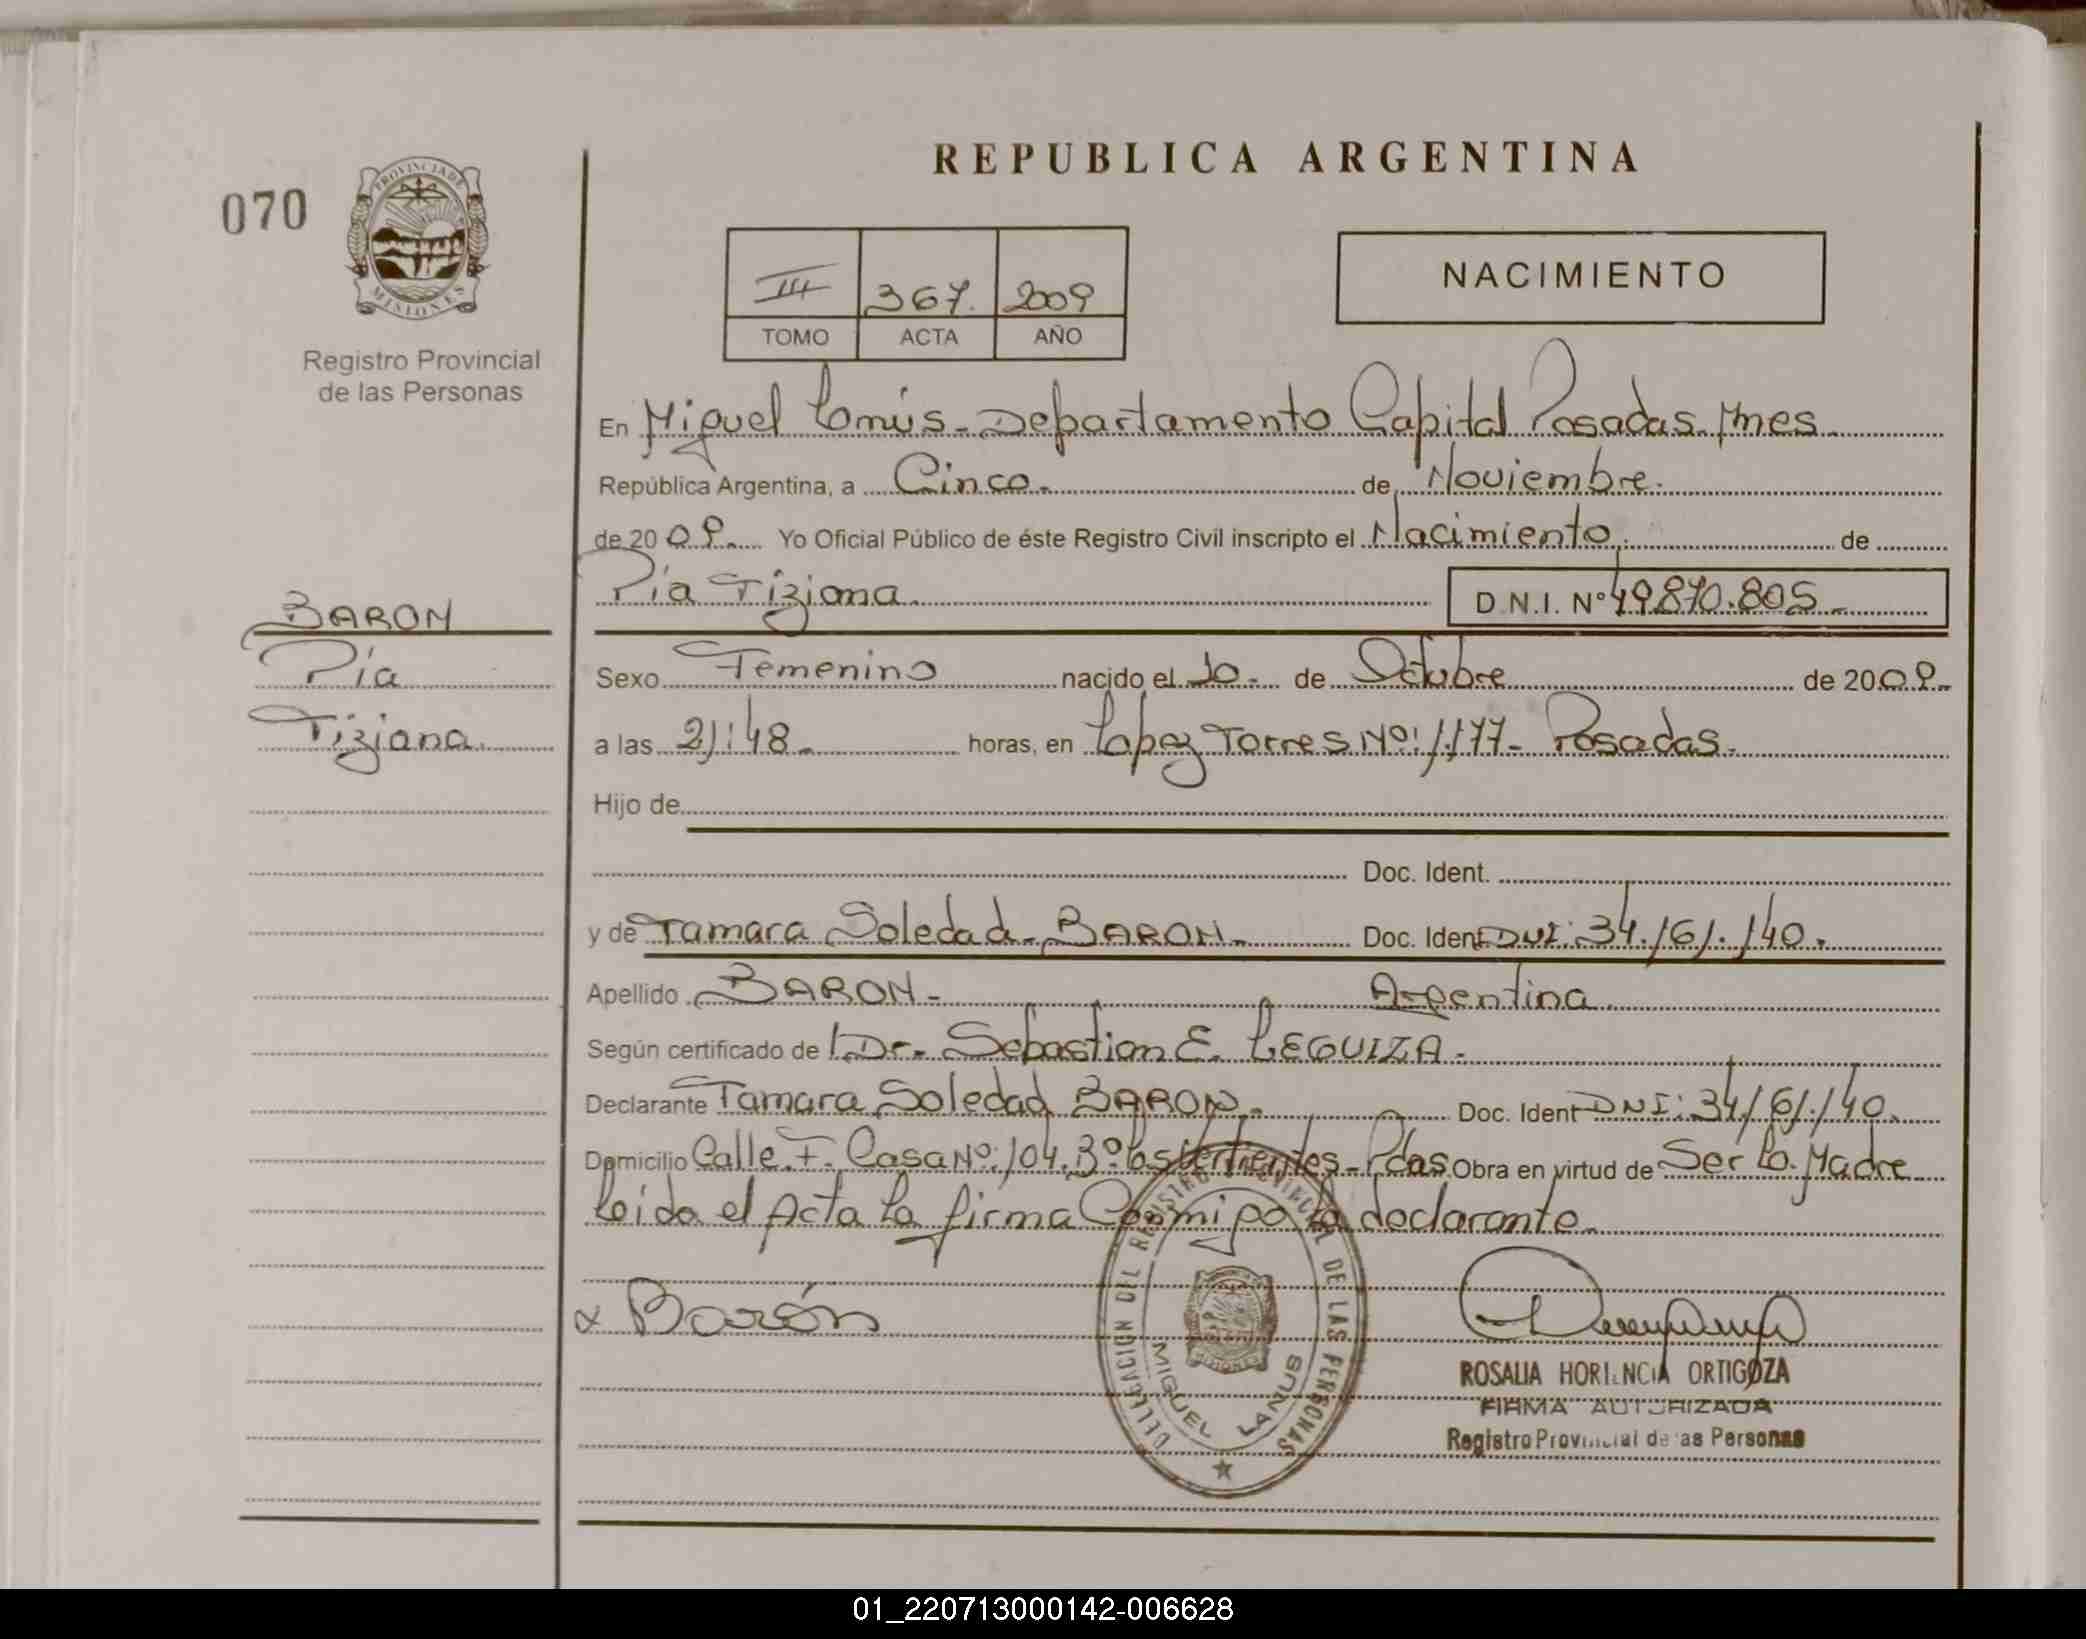 REPUBLICA ARGENTINA
070
PROVINCIA DE MISIONES
Registro Provincial
de las Personas
III 367. 2009
TOMO ACTA AÑO
NACIMIENTO
En Miguel Lanús - Departamento Capital Posadas Mnes.
República Argentina, a Cinco. de Noviembre.
de 2009. Yo Oficial Público de éste Registro Civil inscripto el Nacimiento. de
Pía Tiziana. D.N.I. Nº 49.870.805-
BARON
Pía
Tiziana.
Sexo Femenino nacido el 10. de Octubre de 2009-
a las 21:48. horas, en López Torres Nº: 1.177- Posadas.
Hijo de
Doc. Ident.
y de Tamara Soledad - BARON. Doc. Ident DNI: 34.161.140.
Apellido BARON- Argentina.
Según certificado de Dr. Sebastian E. LEGUIZA.
Declarante Tamara Soledad BARON. Doc. Ident DNI: 34.161.140.
Domicilio Calle. F. Casa Nº: 104. Bº Las Vertientes - Pdas. Obra en virtud de Ser La Madre
Leída el Acta la firma Conmigo la declarante.
x Barón
DELEGACION DEL REGISTRO PROVINCIAL DE LAS PERSONAS
MIGUEL LANUS
ROSALIA HORTENCIA ORTIGOZA
FIRMA AUTORIZADA
Registro Provincial de las Personas
01_220713000142-006628